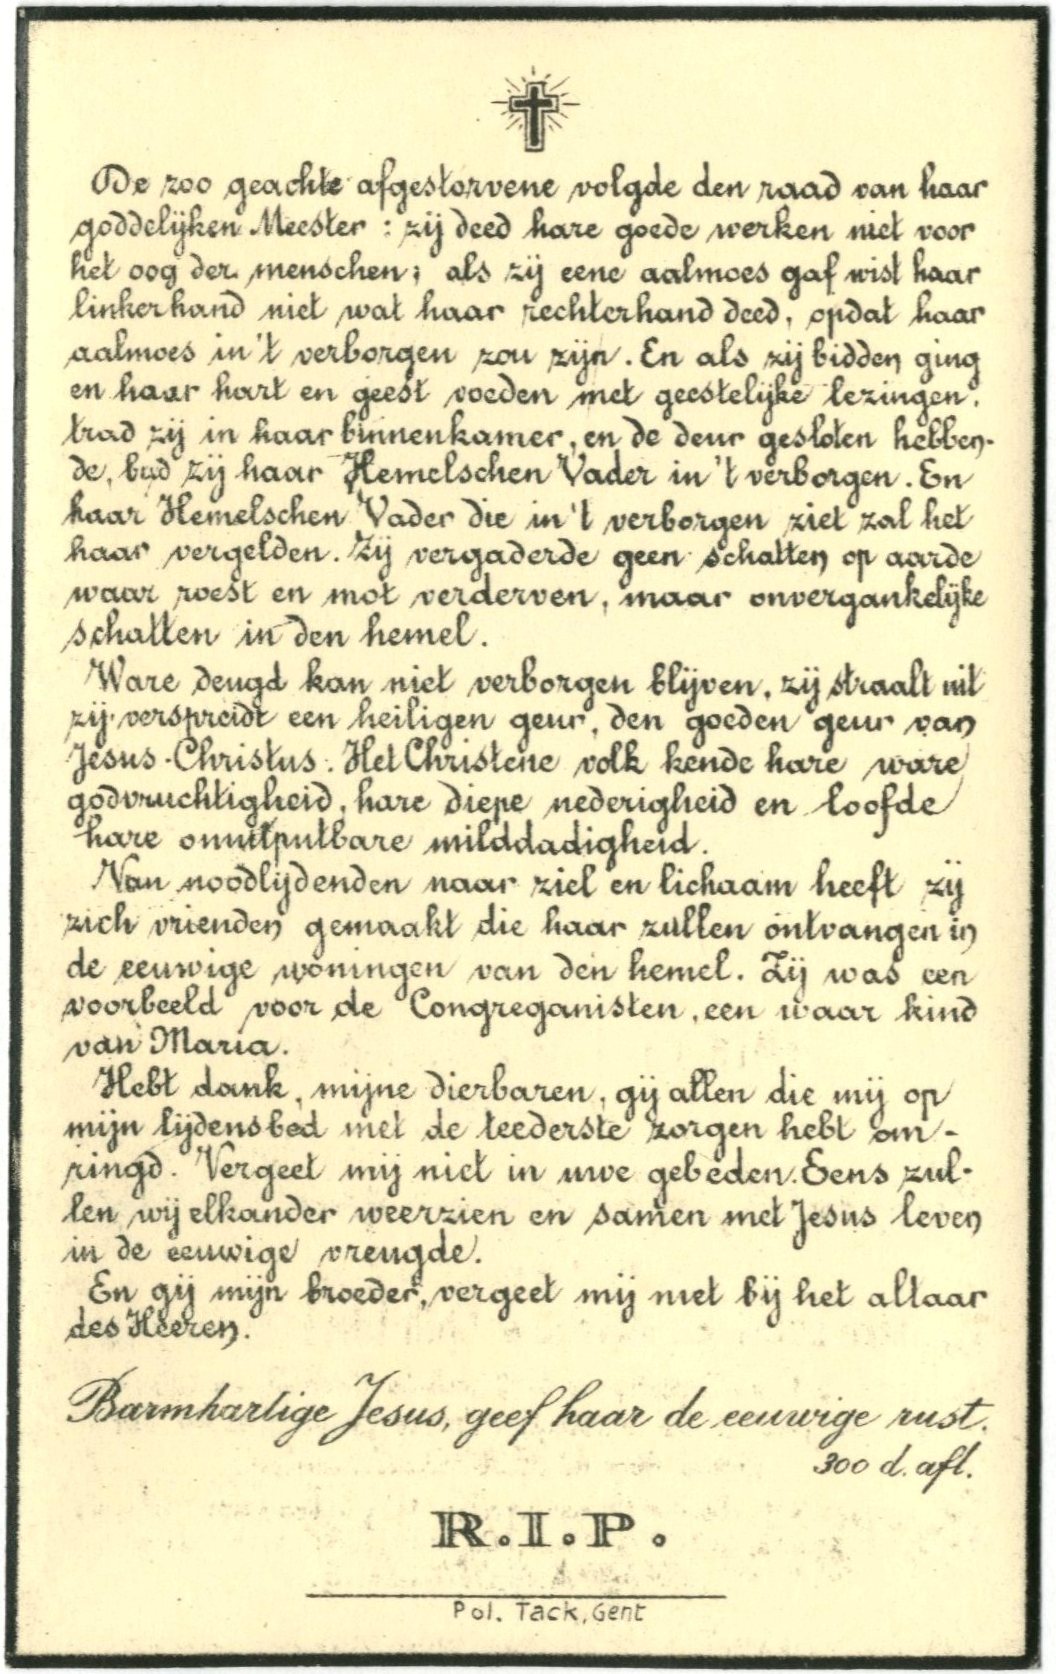 De zoo geachte afgestorvene volgde den raad van haar
goddelijken Meester : zij deed hare goede werken niet voor
het oog der menschen; als zij eene aalmoes gaf wist haar
linkerhand niet wat haar rechterhand deed, opdat haar
aalmoes in 't verborgen zou zijn. En als zij bidden ging
en haar hart en geest voeden met geestelijke lezingen,
trad zij in haar binnenkamer, en de deur gesloten hebben-
de, bad zij haar Hemelschen Vader in 't verborgen. En
haar Hemelschen Vader die in 't verborgen ziet zal het
haar vergelden. Zij vergaderde geen schatten op aarde
waar roest en mot verderven, maar onvergankelijke
schatten in den hemel.
Ware deugd kan niet verborgen blijven, zij straalt uit
zij verspreidt een heiligen geur, den goeden geur van
Jesus-Christus. Het Christene volk kende hare ware
godvruchtigheid, hare diepe nederigheid en loofde
hare onuitputbare milddadigheid.
Van noodlijdenden naar ziel en lichaam heeft zij
zich vrienden gemaakt die haar zullen ontvangen in
de eeuwige woningen van den hemel. Zij was een
voorbeeld voor de Congreganisten, een waar kind
van Maria.
Hebt dank, mijne dierbaren, gij allen die mij op
mijn lijdensbed met de teederste zorgen hebt om-
ringd. Vergeet mij niet in uwe gebeden. Eens zul-
len wij elkander weerzien en samen met Jesus leven
in de eeuwige vreugde.
En gij mijn broeder, vergeet mij niet bij het altaar
des Heeren.
Barmhartige Jesus, geef haar de eeuwige rust.
300 d. afl.
R.I.P.
Pol. Tack, Gent